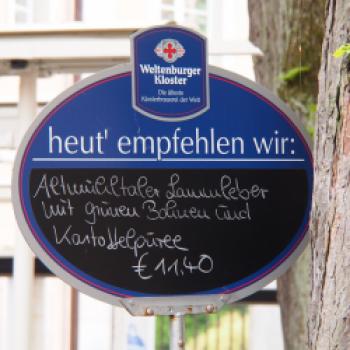 Weltenburger
Kloster
Die älteste
Klosterbrauerei der Welt
heut' empfehlen wir:
Altmühltaler Lammleber
mit grünen Bohnen und
Kartoffelpüree
€ 11.40